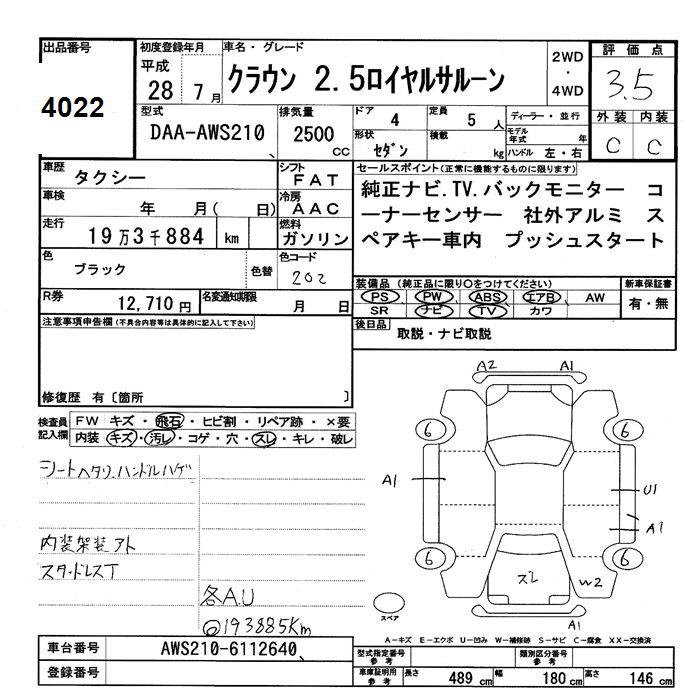 出品番号
4022
初度登録年月
平成
28 7月
車名・グレード
クラウン 2.5ロイヤルサルーン
2WD
・
4WD
評価点
3.5
外装 内装
C C
型式
DAA-AWS210
排気量
2500
CC
ドア 4
定員 5人
ディーラー・並行
形状 セダン
積載 kg
モデル年式 年
ハンドル 左・右
車歴
タクシー
シフト
FAT
車検
年 月( 日)
冷房
AAC
走行
19万3千884 km
燃料
ガソリン
色
ブラック
色替
色コード
202
R券
12,710円
名変通知期限
月 日
セールスポイント(正常に機能するものに限ります)
純正ナビ.TV.バックモニター コ
ーナーセンサー 社外アルミ ス
ペアキー車内 プッシュスタート
装備品(純正品に限り〇をつけてください)
PS PW ABS エアB AW
SR ナビ TV カワ
新車保証書
有・無
後日品
取説・ナビ取説
注意事項申告欄(不具合内容等は具体的に記入して下さい)
修復歴 有〔箇所 〕
検査員
記入欄
FW キズ・飛石・ヒビ割・リペア跡・×要
内装 キズ・汚レ・コゲ・穴・スレ・キレ・破レ
シートヘタリ、ハンドルハゲ
内装架装アト
スタッドレスT
各A.U
◎193885Km
A2 A1
6 6
A1
U1
A1
6 6
ズレ
W2
A1
スペア
A-キズ E-エクボ U-凹み W-補修跡 S-サビ C-腐食 XX-交換済
車台番号
AWS210-6112640
登録番号
型式指定番号
参考
類別区分番号
参考
車庫証明用
参考
長さ 489 cm
幅 180 cm
高さ 146 cm